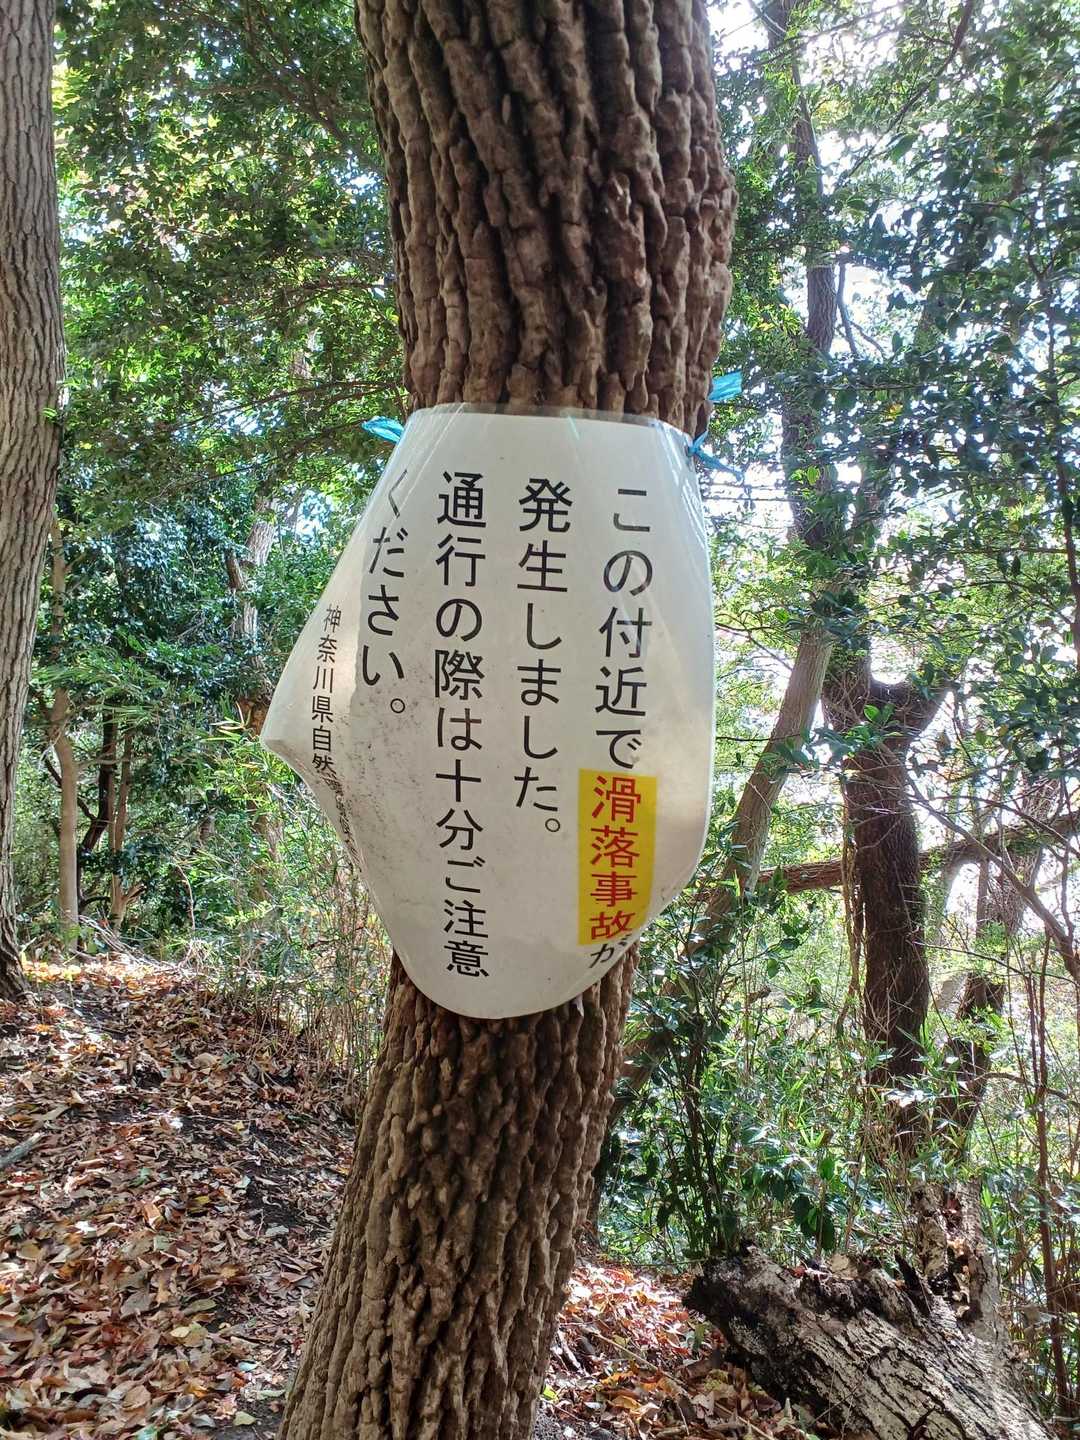 この付近で滑落事故が
発生しました。
通行の際は十分ご注意
ください。
神奈川県自然